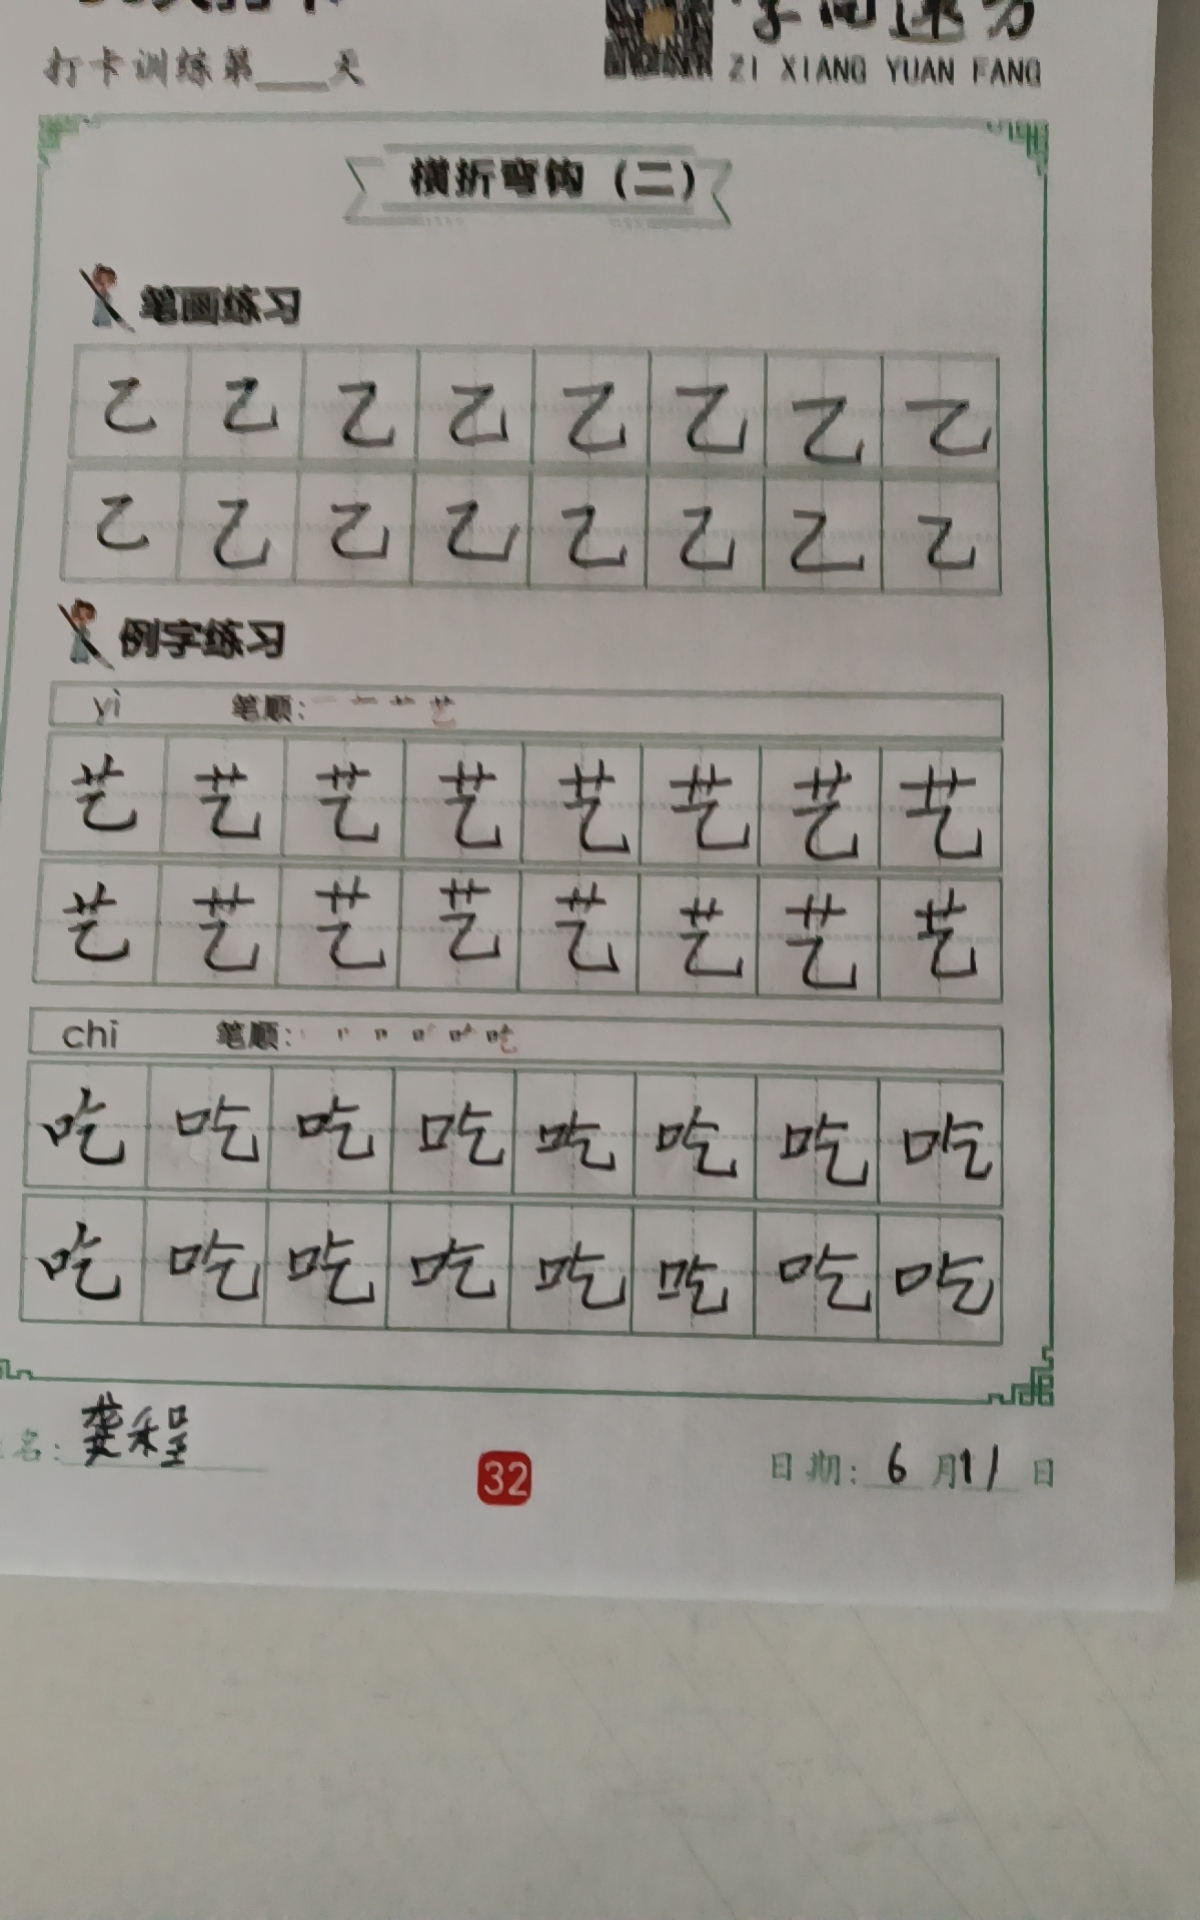 打卡训练第___天
ZI XIANG YUAN FANG
横折弯钩（二）
笔画练习
乙 乙 乙 乙 乙 乙 乙 乙
乙 乙 乙 乙 乙 乙 乙 乙
例字练习
yì 笔顺：一 艹 艺
艺 艺 艺 艺 艺 艺 艺 艺
艺 艺 艺 艺 艺 艺 艺 艺
chī 笔顺：口 吃
吃 吃 吃 吃 吃 吃 吃 吃
吃 吃 吃 吃 吃 吃 吃 吃
名：龚程
32
日期：6月11日